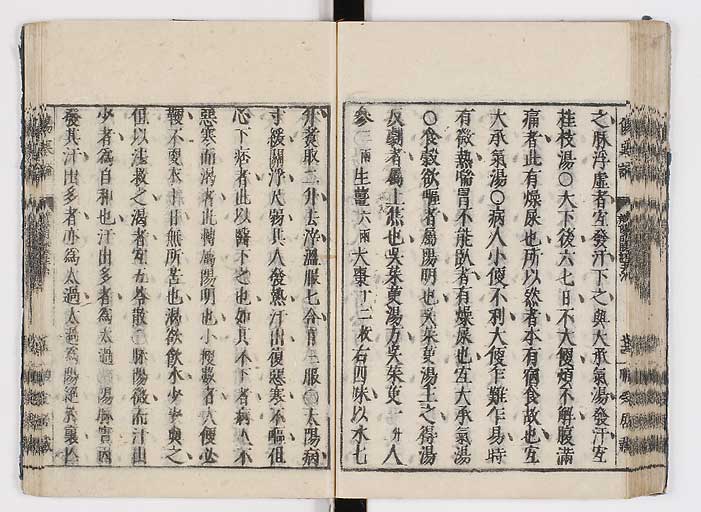 之脉浮虛者宜發汗下之與大承氣湯發汗宜
桂枝湯○大下後六七日不大便煩不解腹滿
痛者此有燥屎也所以然者本有宿食故也宜
大承氣湯○病人小便不利大便乍難乍易時
有微熱喘冒不能臥者有燥屎也宜大承氣湯
○食穀欲嘔者屬陽明也吳茱萸湯主之得湯
反劇者屬上焦也吳茱萸湯方吳茱萸一升人
參三兩生薑六兩大棗十二枚右四味以水七
升煑取二升去滓溫服七合日三服○太陽病
寸緩關浮尺弱其人發熱汗出復惡寒不嘔但
心下痞者此以醫下之也如其不下者病人不
惡寒而渴者此轉屬陽明也小便數者大便必
鞕不更衣十日無所苦也渴欲飲水少少與之
但以法救之渴者宜五苓散○脉陽微而汗出
少者爲自和也汗出多者爲太過○陽脉實因
發其汗出多者亦爲太過太過爲陽絕於裏亡
傷寒論